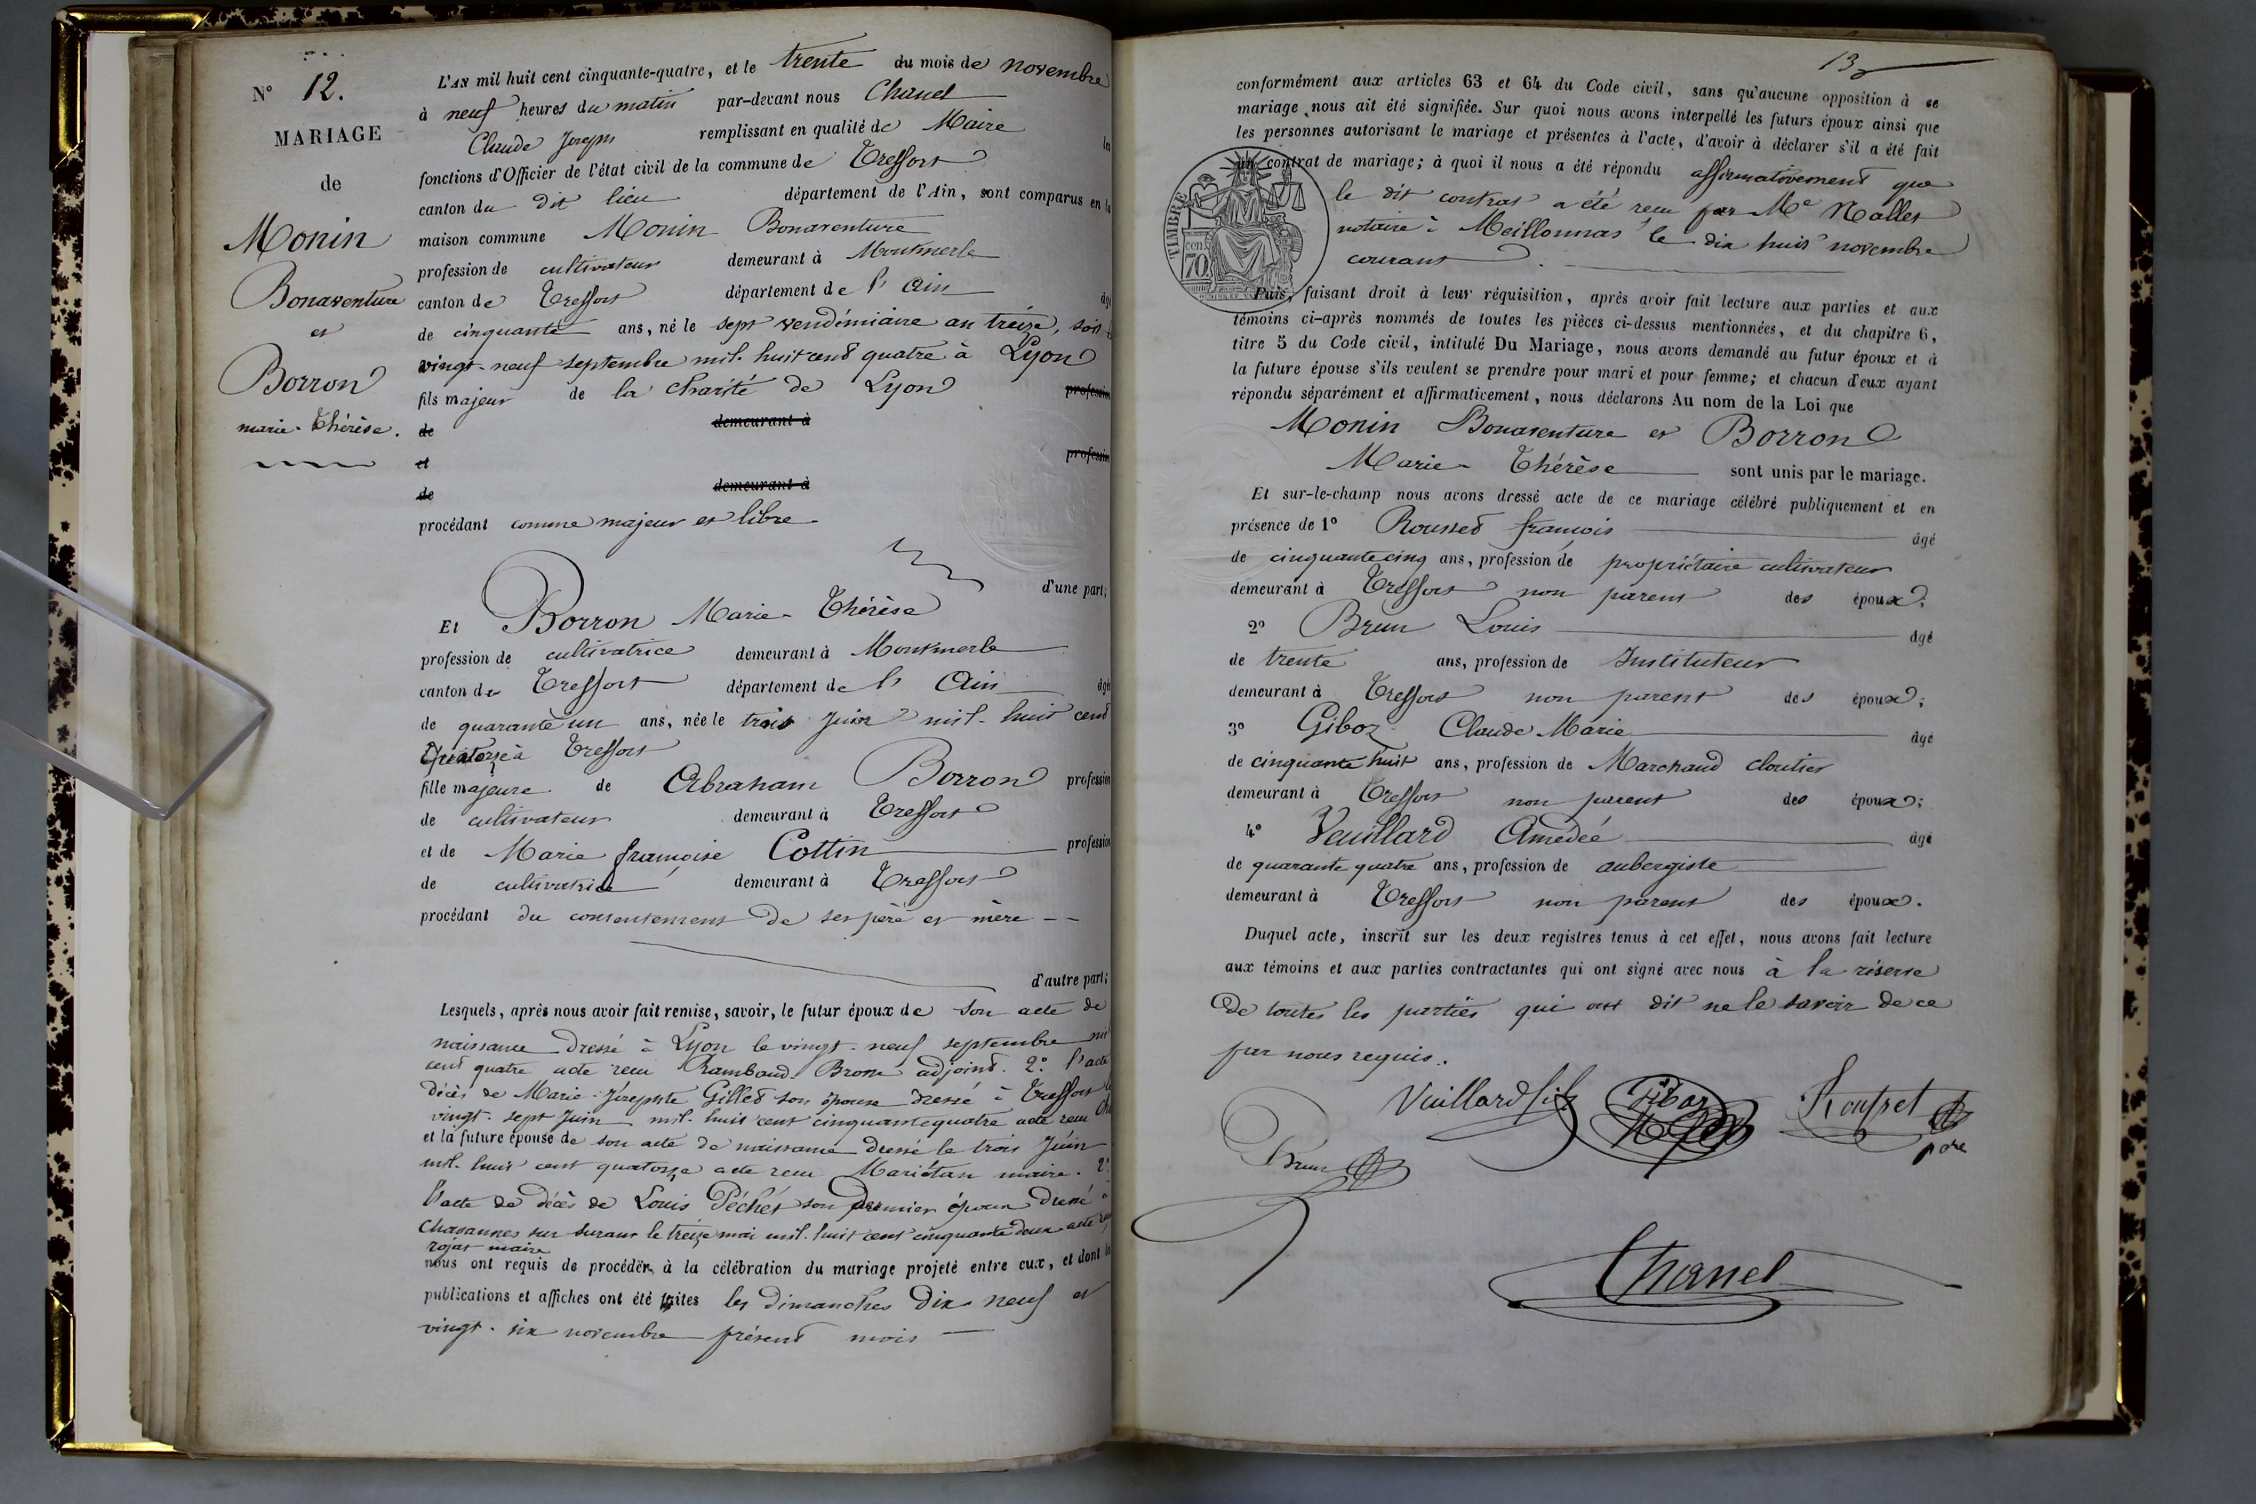 N° 12.
MARIAGE
de
Monin
Bonaventure
et
Borron
marie-Thérèse.
L'AN mil huit cent cinquante-quatre, et le trente du mois de novembre
à neuf heures du matin par-devant nous Chanel
Claude Joseph remplissant en qualité de Maire les
fonctions d'Officier de l'état civil de la commune de Treffort
canton du dit lieu département de l'Ain, sont comparus en la
maison commune Monin Bonaventure
profession de cultivateur demeurant à Montmerle
canton de Treffort département de l'Ain âgé
de cinquante ans, né le sept vendémiaire an treize, soit le
vingt-neuf septembre mil-huit cent quatre à Lyon
fils majeur de la charité de Lyon profession
de demeurant à
et profession
de demeurant à
procédant comme majeur et libre
d'une part;
Et Borron Marie-Thérèse
profession de cultivatrice demeurant à Montmerle
canton de Treffort département de l'Ain âgée
de quarante un ans, née le trois Juin mil-huit cent
Quatorze à Treffort
fille majeure de Abraham Borron profession
de cultivateur demeurant à Treffort
et de Marie françoise Cottin profession
de cultivatrice demeurant à Treffort
procédant du consentement de ses père et mère
d'autre part;
Lesquels, après nous avoir fait remise, savoir, le futur époux de son acte de
naissance dressé à Lyon le vingt-neuf septembre mil
cent quatre acte reçu Rambaud-Brosse adjoint. 2° l'acte
décès de Marie-Josephte Gillet son épouse dressé à Treffort le
vingt-sept Juin mil-huit cent cinquante quatre acte reçu
et la future épouse de son acte de naissance dressé le trois Juin
mil-huit cent quatorze acte reçu Mariétan maire. 2°
l'acte de décès de Louis Péchet son premier époux dressé à
Chavannes sur Surant le treize mai mil-huit cent cinquante deux acte reçu
rojat maire
nous ont requis de procéder à la célébration du mariage projeté entre eux, et dont les
publications et affiches ont été faites les dimanches dix-neuf et
vingt-six novembre présent mois
13
conformément aux articles 63 et 64 du Code civil, sans qu'aucune opposition à ce
mariage nous ait été signifiée. Sur quoi nous avons interpellé les futurs époux ainsi que
les personnes autorisant le mariage et présentes à l'acte, d'avoir à déclarer s'il a été fait
un contrat de mariage; à quoi il nous a été répondu affirmativement que
le dit contrat a été reçu par Me Nallet
notaire à Meillonnas le dix huit novembre
courant.
TIMBRE
70
Puis, faisant droit à leur réquisition, après avoir fait lecture aux parties et aux
témoins ci-après nommés de toutes les pièces ci-dessus mentionnées, et du chapitre 6,
titre 5 du Code civil, intitulé Du Mariage, nous avons demandé au futur époux et à
la future épouse s'ils veulent se prendre pour mari et pour femme; et chacun d'eux ayant
répondu séparément et affirmativement, nous déclarons Au nom de la Loi que
Monin Bonaventure et Borron
Marie-Thérèse sont unis par le mariage.
Et sur-le-champ nous avons dressé acte de ce mariage célébré publiquement et en
présence de 1° Rousset françois âgé
de cinquante cinq ans, profession de propriétaire cultivateur
demeurant à Treffort non parent des époux;
2° Brun Louis âgé
de trente ans, profession de Instituteur
demeurant à Treffort non parent des époux;
3° Giboz Claude Marie âgé
de cinquante huit ans, profession de Marchand cloutier
demeurant à Treffort non parent des époux;
4° Veuillard Amedée âgé
de quarante quatre ans, profession de aubergiste
demeurant à Treffort non parent des époux.
Duquel acte, inscrit sur les deux registres tenus à cet effet, nous avons fait lecture
aux témoins et aux parties contractantes qui ont signé avec nous à la réserve
de toutes les parties qui ont dit ne le savoir de ce
par nous requis.
Vuillard fils Giboz Rousset
père
Brun
Chanel